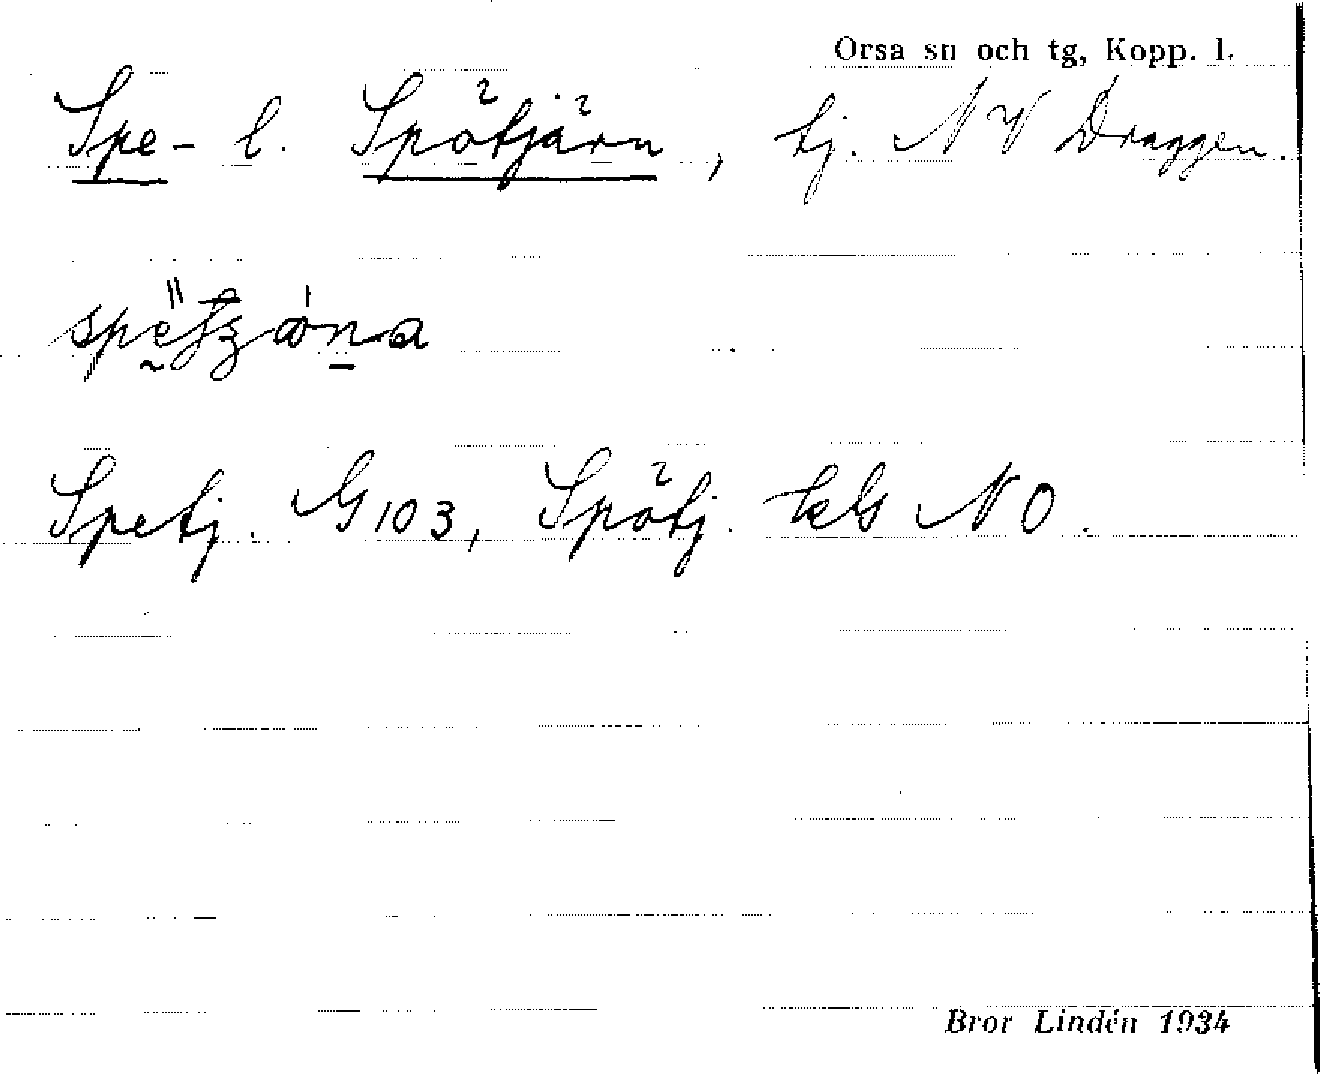 Orsa sn och tg, Kopp. l.
Spe- l. Spötjärn, tj. NV Draggen.
Spetj. G 103, Spötj. NO.
Bror Lindén 1934